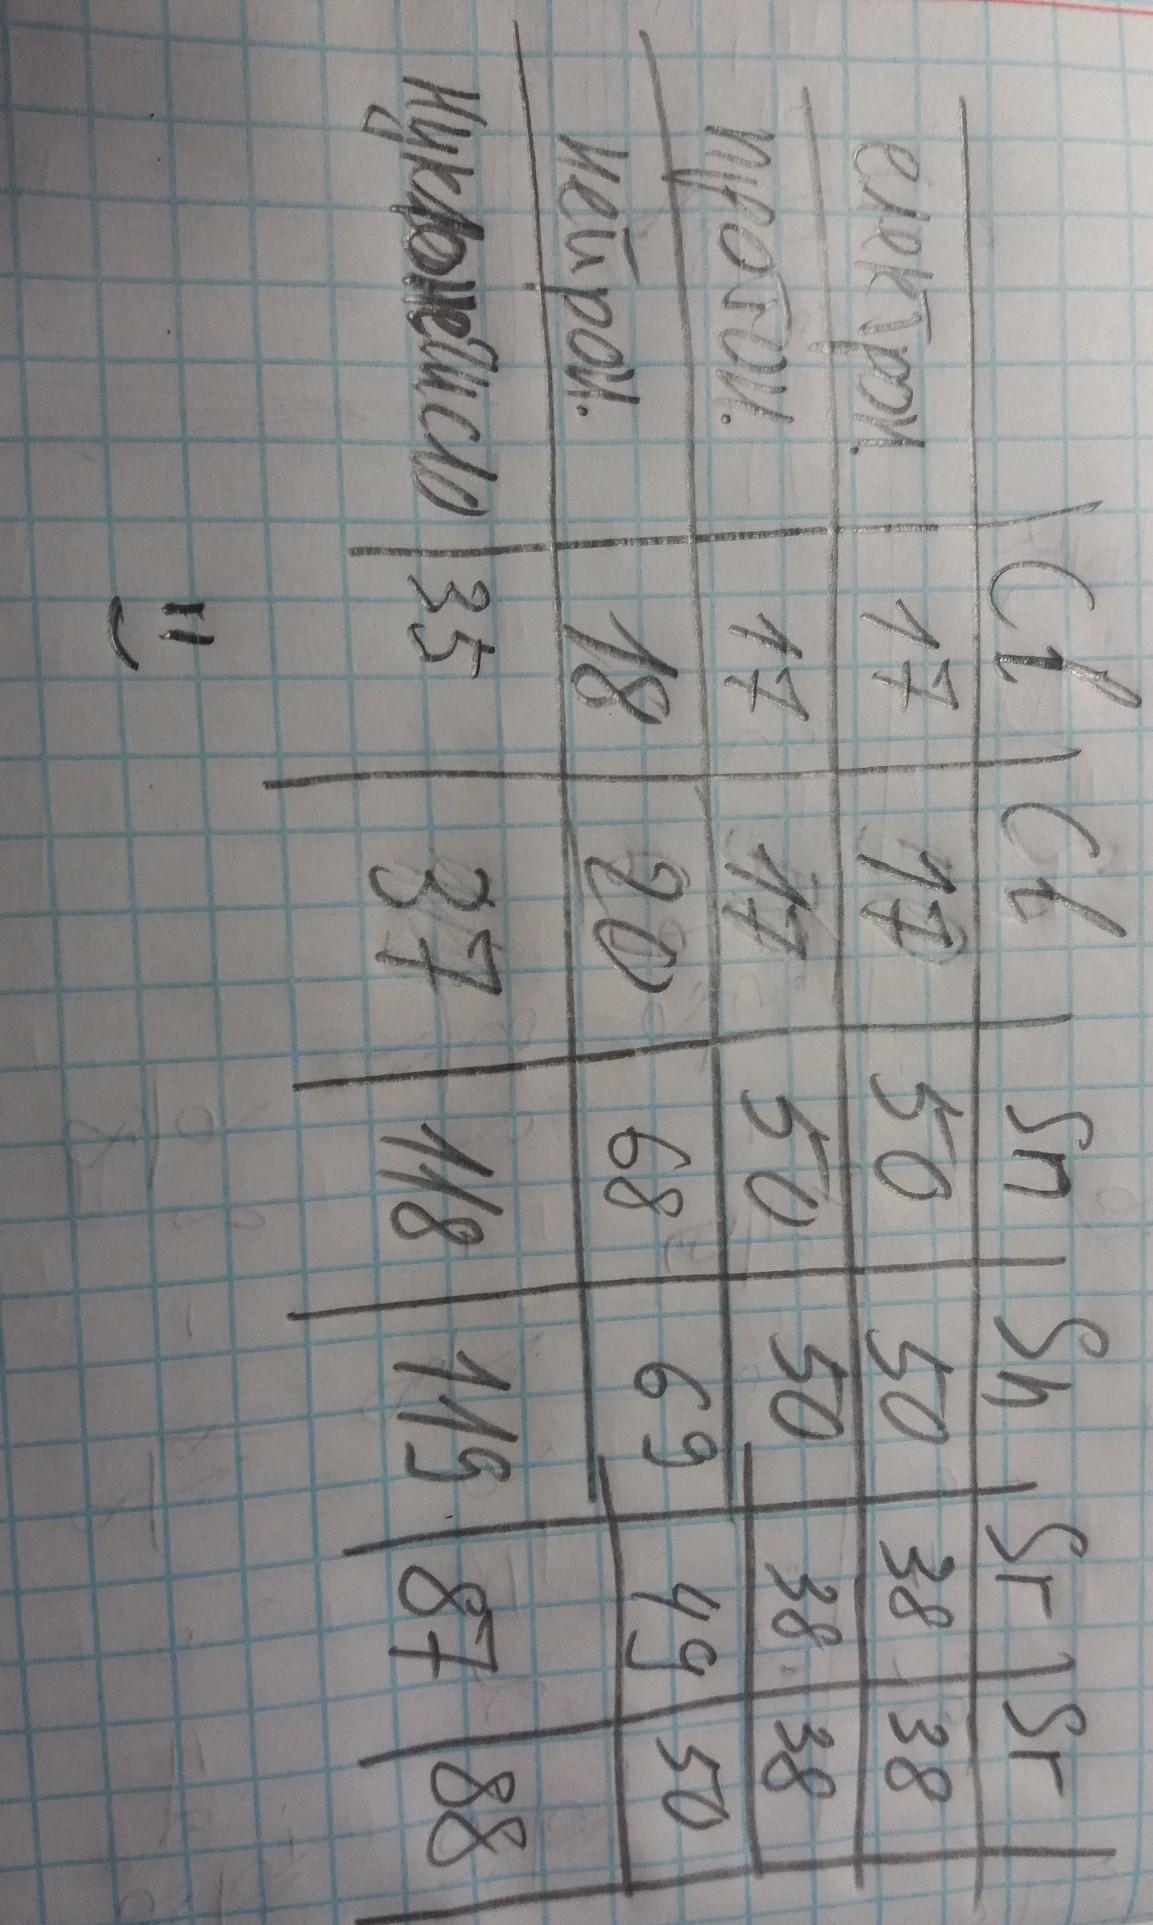 Cl Cl Sn Sn Sr Sr
електрон. 17 17 50 50 38 38
протон. 17 17 50 50 38 38
нейтрон. 18 20 68 69 49 50
35 37 118 119 87 88